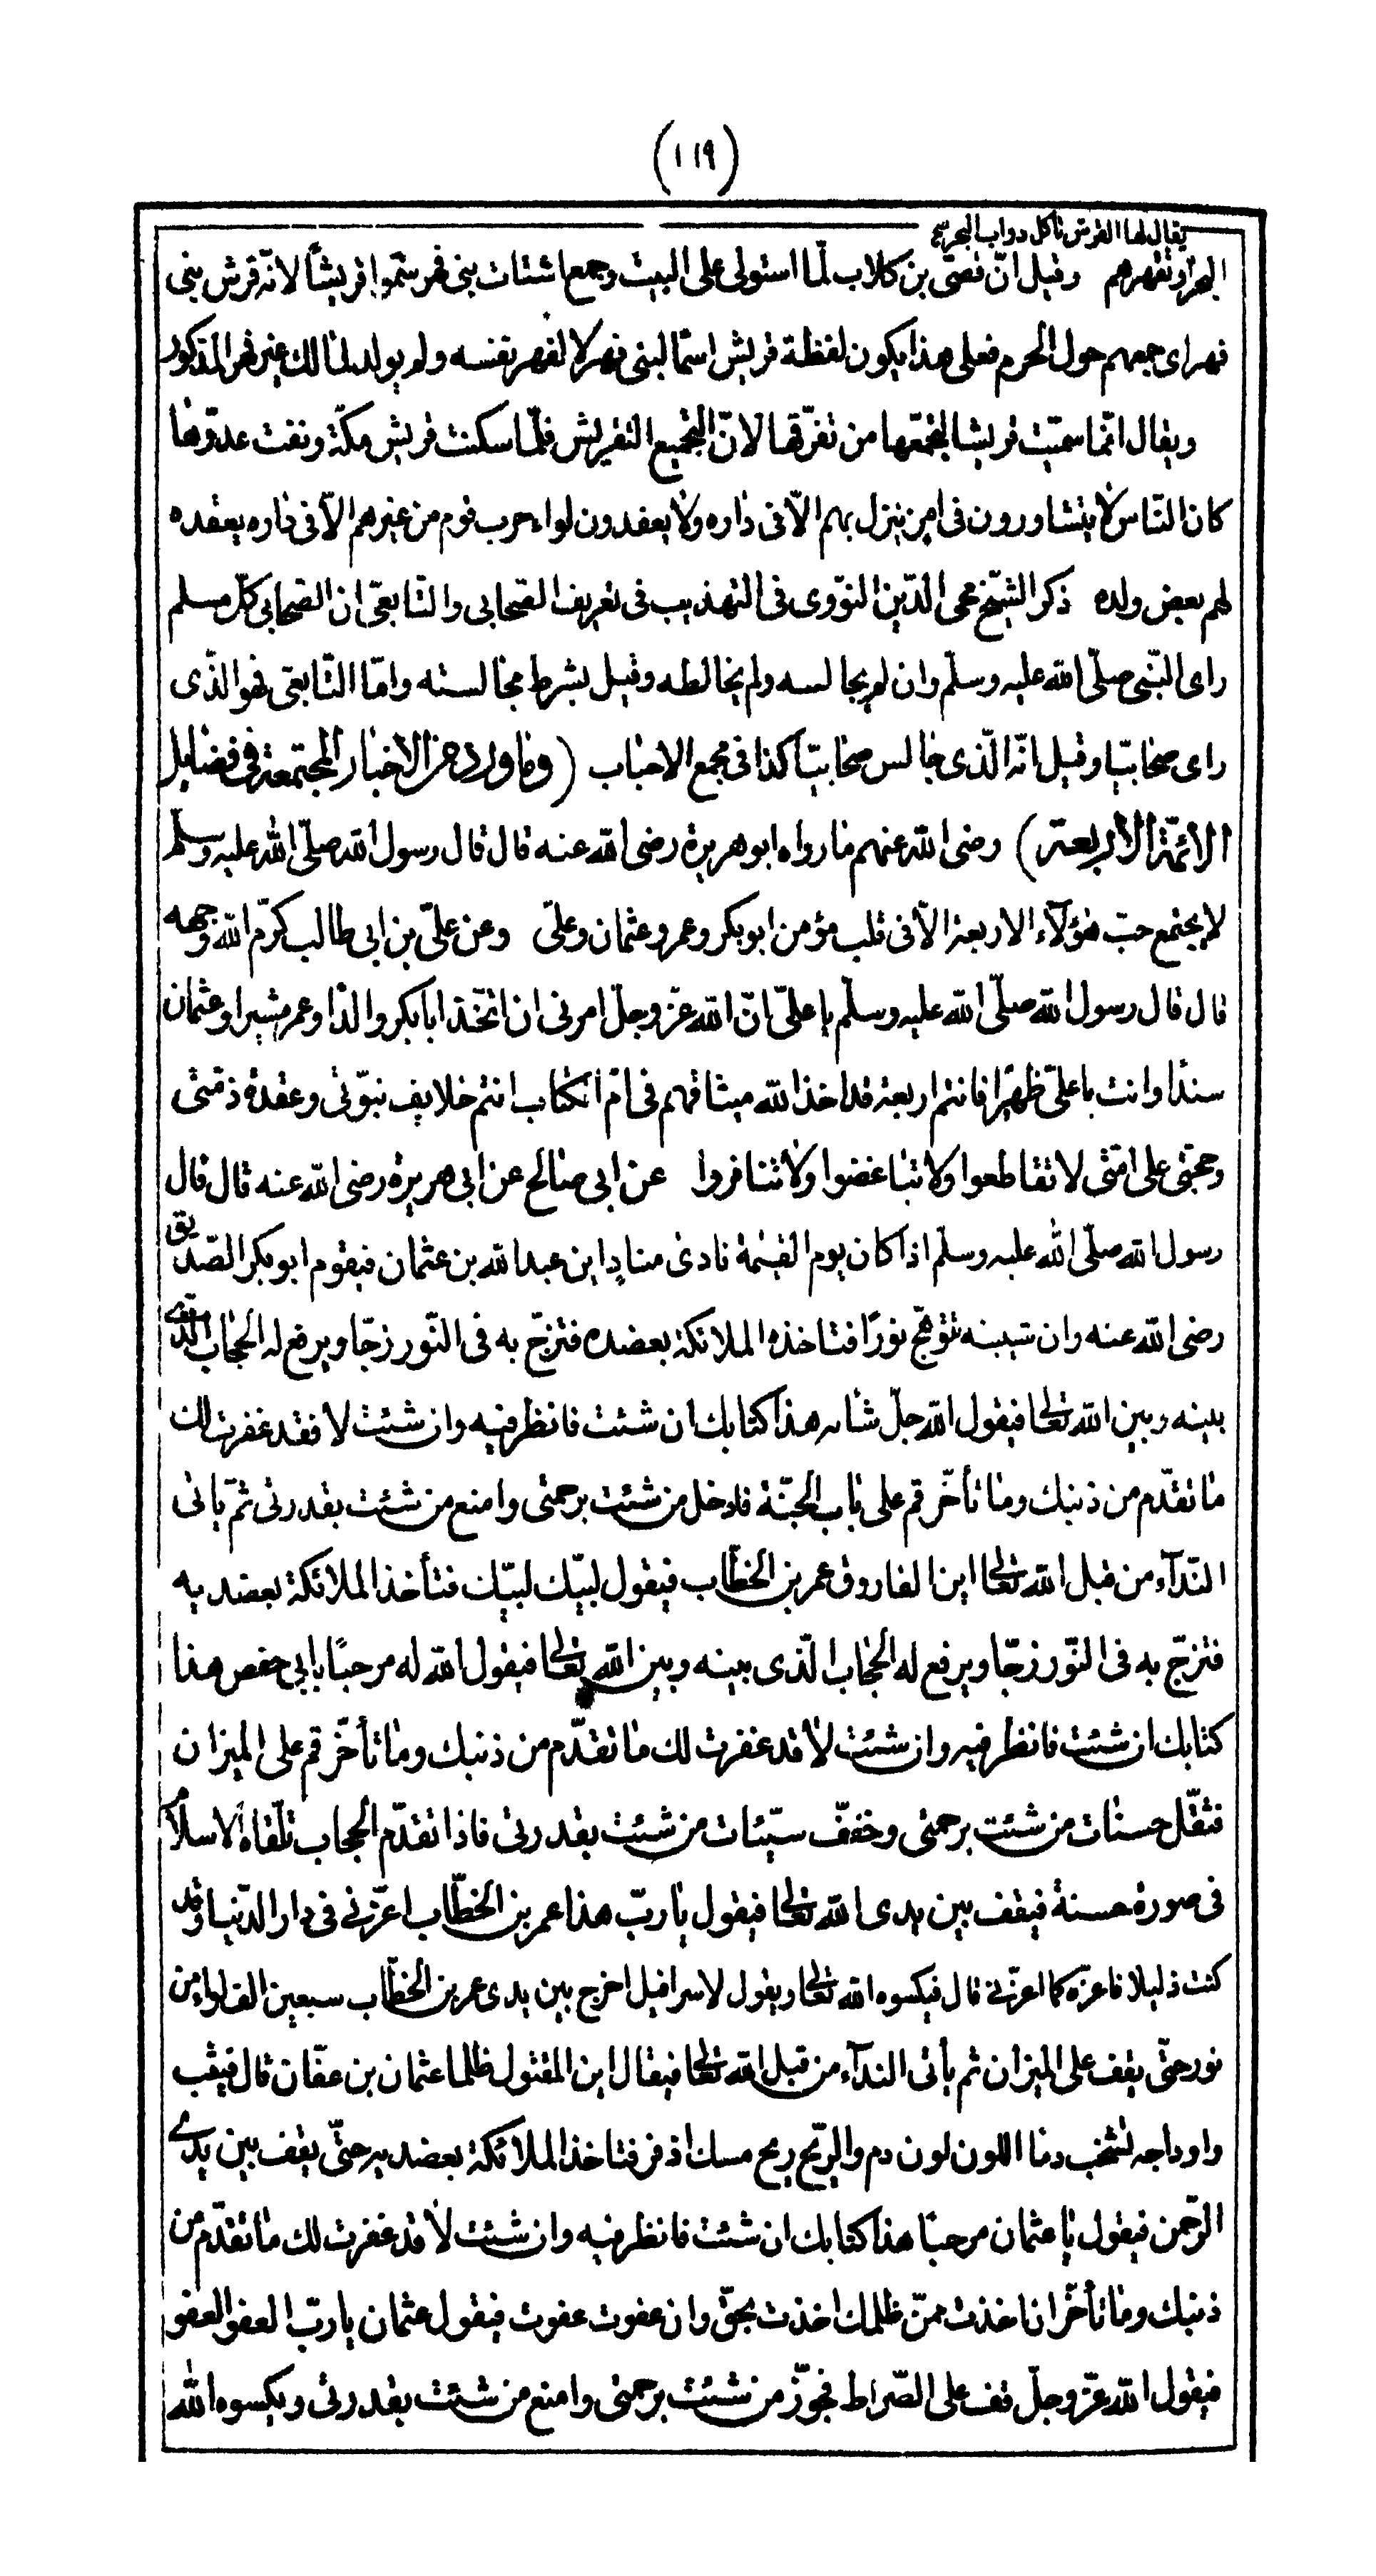 (١١٩)
يقال لها القرش تأكل دواب البحر
البحر وتقهرهم وقيل انّ قصىّ بن كلاب لمّا استولى على البيت وجمع اشتات بنى فهر سمّوا قريشاً لانّه قرش بنى
فهر اى جمعهم حول الحرم فعلى هذا يكون لفظة قريش اسمًا لبنى فهر لا لفهر بنفسه ولم يولد لمالك غير فهر المذكور
ويقال انّما سمّيت قريشا لتجمّعها من تفرّقها لانّ التجميع التقريش فلمّا سكنت قريش مكّة ونفت عدوّها
كان النّاس لا يتشاورون فى امر ينزل بهم الّا فى داره ولا يعقدون لواء حرب قوم من غيرهم الّا فى داره يعقده
لهم بعض ولده ذكر الشّيخ محى الدّين النوّوى فى التهذيب فى تعريف الصّحابى والتّابعىّ ان الصّحابى كلّ مسلم
راى النّبى صلّى الله عليه وسلّم وان لم يجالسه ولم يخالطه وقيل بشرط مجالسته وامّا التّابعى فهو الّذى
راى صحابيّا وقيل انّه الّذى جالس صحابيّا كذا فى مجمع الاحباب (وما ورد من الاخبار المجتمعة فى فضايل
الائمّة الاربعة) رضى الله عنهم ما رواه ابو هريرة رضى الله عنه قال قال رسول الله صلّى الله عليه وسلّم
لا يجتمع حبّ هؤلآء الاربعة الّا فى قلب مؤمن ابو بكر وعمر وعثمان وعلى وعن علىّ بن ابى طالب كرّم الله وجهه
قال قال رسول الله صلّى الله عليه وسلّم يا علىّ انّ الله عزّ وجلّ امرنى ان اتّخذ ابا بكر والدًا وعمر مشيرا وعثمان
سندًا وانت يا علىّ ظهيرًا فانتم اربعة قد اخذ الله ميثاقهم فى امّ الكتاب انتم خلايف نبوّتى وعقدة ذمّتى
وحجّتى على امّتى لا تقاطعوا ولا تباغضوا ولا تنافروا عن ابى صالح عن ابى هريرة رضى الله عنه قال قال
رسول الله صلّى الله عليه وسلّم اذا كان يوم القيٰمة نادى منادٍ اين عبد الله بن عثمان فيقوم ابو بكر الصّدّيق
رضى الله عنه وان شيبته تتوهّج نورًا فتاخذه الملائكة بعضده فتزجّ به فى النّور زجّا ويرفع له الحجاب الّذى
بينه وبين الله تعالى فيقول الله جلّ شانه هذا كتابك ان شئت فانظر فيه وان شئت لا فقد غفرت لك
ما تقدّم من ذنبك وما تأخّر قم على باب الجنّة فادخل من شئت برحمتى وامنع من شئت بقدرتى ثمّ ياتى
النّدآء من قبل الله تعالى اين الفاروق عمر بن الخطّاب فيقول لبيّك لبيّك فتأخذ الملائكة بعضديه
فتزجّ به فى النّور زجّا ويرفع له الحجاب الّذى بينه وبين الله تعالى فيقول الله له مرحبًا بابى حفص هذا
كتابك ان شئت فانظر فيه وان شئت لا قد غفرت لك ما تقدّم من ذنبك وما تأخّر قم على الميزان
فثقّل حسنات من شئت برحمتى وخفّف سيّئات من شئت بقدرتى فاذا تقدّم الحجاب تلقّاه الاسلام
فى صورة حسنة فيقف بين يدى الله تعالى فيقول يا ربّ هذا عمر بن الخطّاب اعزّنى فى دار الدّنيا وقد
كنت ذليلا فاعزّه كما اعزّنى قال فيكسوه الله تعالى ويقول لاسرافيل اخرج بين يدى عمر بن الخطّاب سبعين الف لواء من
نور حتّى يقف على الميزان ثم يأتى الندآء من قبل الله تعالى فيقال اين المقتول ظلما عثمان بن عفّان قال فيثب
واوداجه تشخب دما اللون لون دم والرّيح ريح مسك اذفر فتاخذ الملائكة بعضديه حتّى يقف بين يدى
الرّحمن فيقول يا عثمان مرحبًا هذا كتابك ان شئت فانظر فيه وان شئت لا قد غفرت لك ما تقدّم من
ذنبك وما تأخّر ان اخذت ممنّ ظلمك اخذت بحقّ وان عفوت عفوت فيقول عثمان يا ربّ العفو العفو
فيقول الله عزّ وجلّ قف على الصّراط فجوّز من شئت برحمتى وامنع من شئت بقدرتى ويكسوه الله